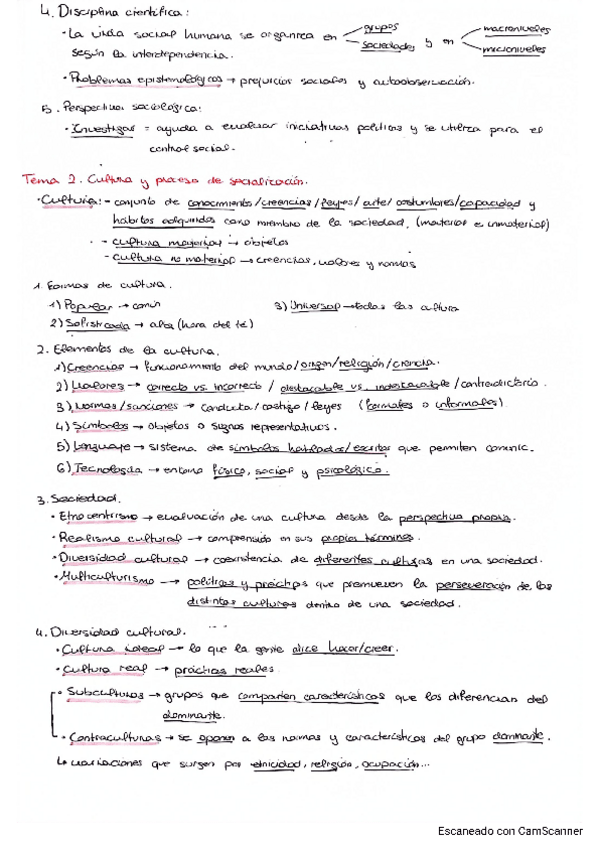 4. Disciplina científica:
· La vida social humana se organiza en < grupos sociedades y en < macroniveles microniveles
según la interdependencia.
· Problemas epistemológicos → prejuicios sociales y autoobservación.
5. Perspectiva sociológica:
· Investigar = ayuda a evaluar iniciativas políticas y se utiliza para el
control social.
Tema 2. Cultura y proceso de socialización.
· Cultura: - conjunto de conocimiento/creencias/leyes/arte/costumbres/capacidad y
hábitos adquiridos como miembro de la sociedad. (material e inmaterial)
- cultura material → objetos
- cultura no material → creencias, valores y normas
1. Formas de cultura.
1) Popular → común
3) Universal → todas las cultura
2) Sofisticada → alta (hora del té)
2. Elementos de la cultura.
1) Creencias → funcionamiento del mundo/origen/religión/ciencia.
2) Valores → correcto vs. incorrecto / destacable vs. indestacable / contradictorio.
3) Normas/sanciones → conducta/castigo/leyes (formales o informales)
4) Símbolos → objetos o signos representativos.
5) Lenguaje → sistema de símbolos hablados/escritos que permiten comunic.
6) Tecnología → entorno físico, social y psicológico.
3. Sociedad.
· Etnocentrismo → evaluación de una cultura desde la perspectiva propia.
· Realismo cultural → comprensión en sus propios términos.
· Diversidad cultural → coexistencia de diferentes culturas en una sociedad.
· Multiculturismo → políticas y prácticas que promueven la perseveración de las
distintas culturas dentro de una sociedad.
4. Diversidad cultural.
· Cultura ideal → lo que la gente dice hacer/creer.
· Cultura real → prácticas reales
· Subculturas → grupos que comparten características que los diferencian del
dominante.
· Contraculturas → se oponen a las normas y características del grupo dominante.
↳ variaciones que surgen por etnicidad, religión, ocupación...
Escaneado con CamScanner